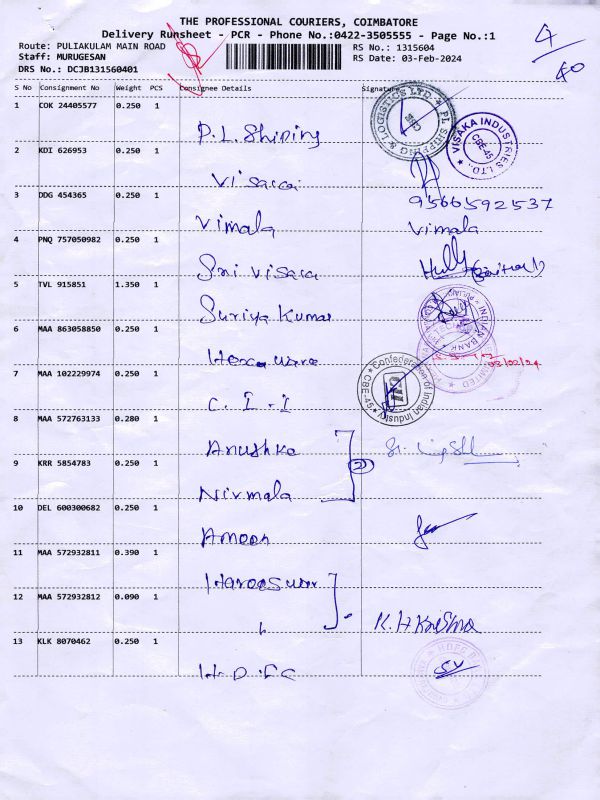 THE PROFESSIONAL COURIERS, COIMBATORE
Delivery Runsheet - PCR - Phone No.:0422-3505555 - Page No.:1
Route: PULIAKULAM MAIN ROAD
Staff: MURUGESAN
DRS No.: DCJB131560401
RS No.: 1315604
RS Date: 03-Feb-2024
4
40
S No Consignment No Weight PCS Consignee Details Signature
1 COK 24405577 0.250 1 P.L. Shiping
PL SHIPPING & LOGISTICS LTD.
2 KDI 626953 0.250 1
VISAKA INDUSTRIES LTD., CBE-45
3 DDG 454365 0.250 1 Vimala 9566592537
Vimala
4 PNQ 757050982 0.250 1 Sri Visaca
5 TVL 915851 1.350 1 Suriya Kumar
INDIAN BANK
6 MAA 863058850 0.250 1 Hexaware
03/02/24
7 MAA 102229974 0.250 1 C.I.I
Confederation of Indian Industry CBE-45
8 MAA 572763133 0.280 1 Anushka
2
9 KRR 5854783 0.250 1 Nirmala
10 DEL 600300682 0.250 1 Amoon
11 MAA 572932811 0.390 1
12 MAA 572932812 0.090 1
K.H Krishna
13 KLK 8070462 0.250 1 H.D.FC